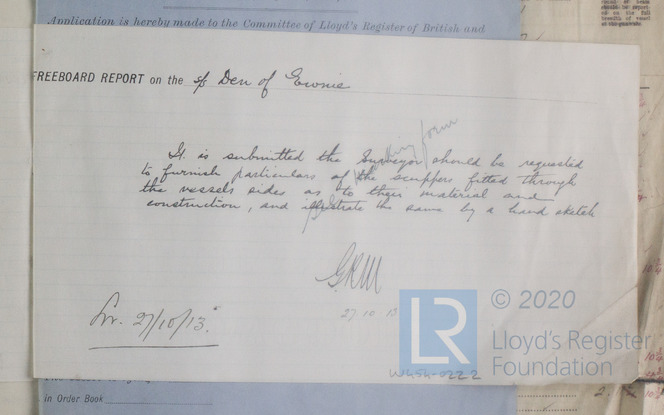 Application is hereby made to the Committee of Lloyd's Register of British and
REEBOARD REPORT on the s/s Den of Ewnie
It is submitted the Surveyor should be requested
to furnish particulars of the scuppers fitted through
the vessels sides as to their material and
construction, and illustrate the same by a hand sketch
form
GRM
27 10 13
27/10/13.
W454-0222
LR
© 2020
Lloyd's Register
Foundation
in Order Book